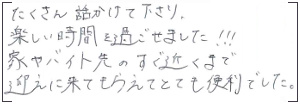 たくさん話かけて下さり、
楽しい時間を過ごせました!!!
家やバイト先のすぐ近くまで
迎えに来てもらえてとても便利でした。